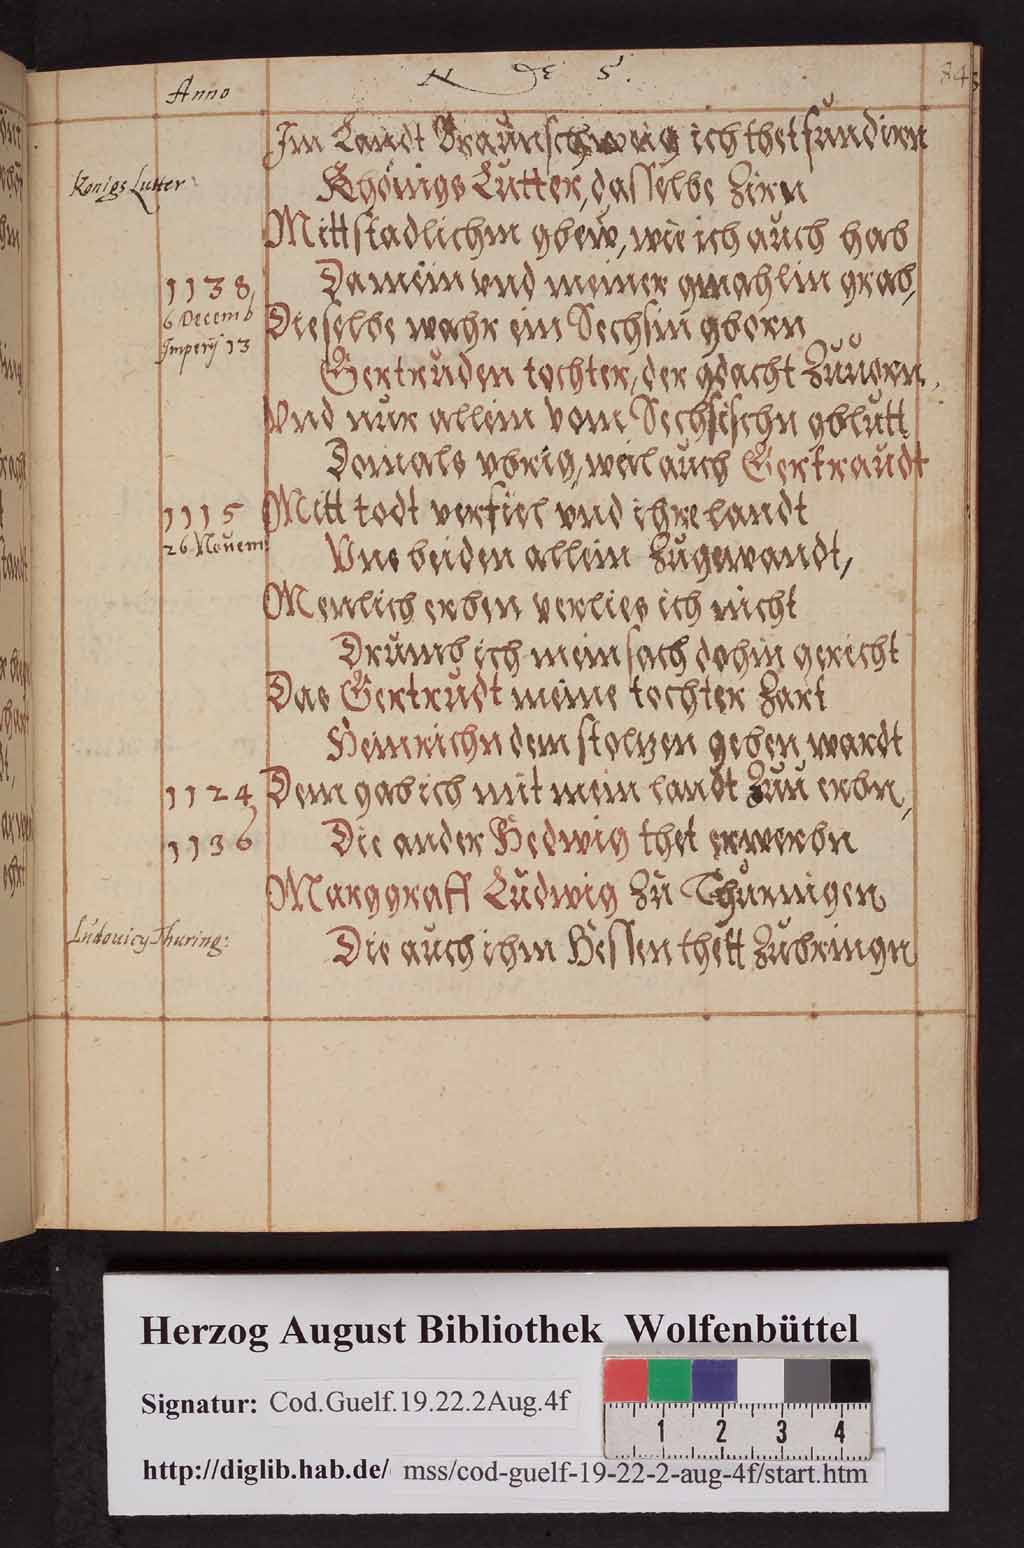 Anno
N DE 5.
84
Im Landt Braunschweig ich thet fundirn
Konigs Lutter
Khönigs Lutter, dasselbe Zirn
Mitt stadlichm gbew, wie ich auch hab
1138,
Da mein vnd meiner gmahlin grab,
6 Decemb
Dieselbe wahr ein Sechsin gborn
Imperij 13
Gertruden tochter, der gdacht Zuuorn,
Vnd nur allein vom Sechsischn gblutt
Domals vbrig, weil auch Gertraudt
1115
Mitt todt verfiel vnd ihre landt
26 Nouem:
Vns beiden allein Zugewandt,
Menlich erben verlies ich nicht
Drumb ich mein sach dohin gericht
Das Gertrudt meine tochter Zart
Heinrichn dem stoltzen geben wardt
1124
Dem gab ich mit mein landt Zuu erbn,
1136
Die ander Hedwig thet erwerbn
Marggraff Ludwig Zu Thurnigen
Ludouicy Thuring:
Die auch ihm Hessen thett Zubringn
Herzog August Bibliothek Wolfenbüttel
Signatur: Cod.Guelf.19.22.2Aug.4f
1 2 3 4
http://diglib.hab.de/ mss/cod-guelf-19-22-2-aug-4f/start.htm